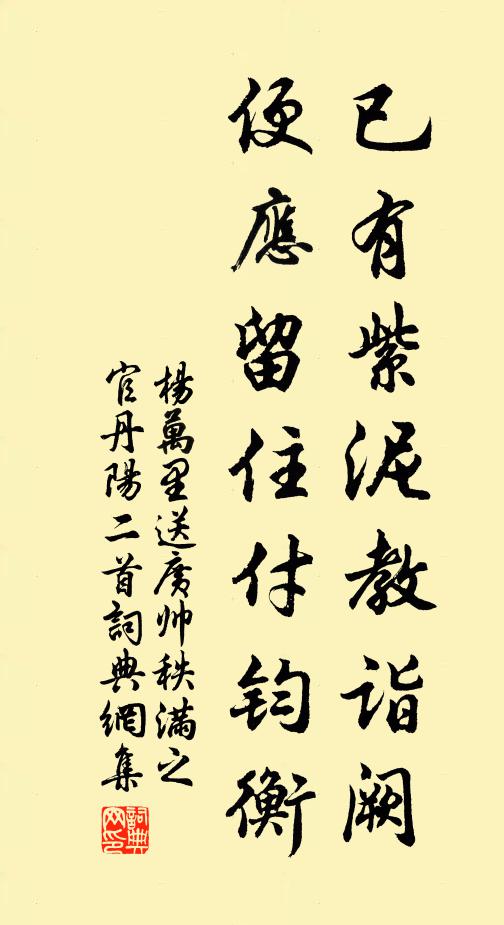 已有紫泥教诣阙
便應留住付钧衡
楊萬里送廣帅秩滿之
官丹陽二首詞典網集
詞典网印